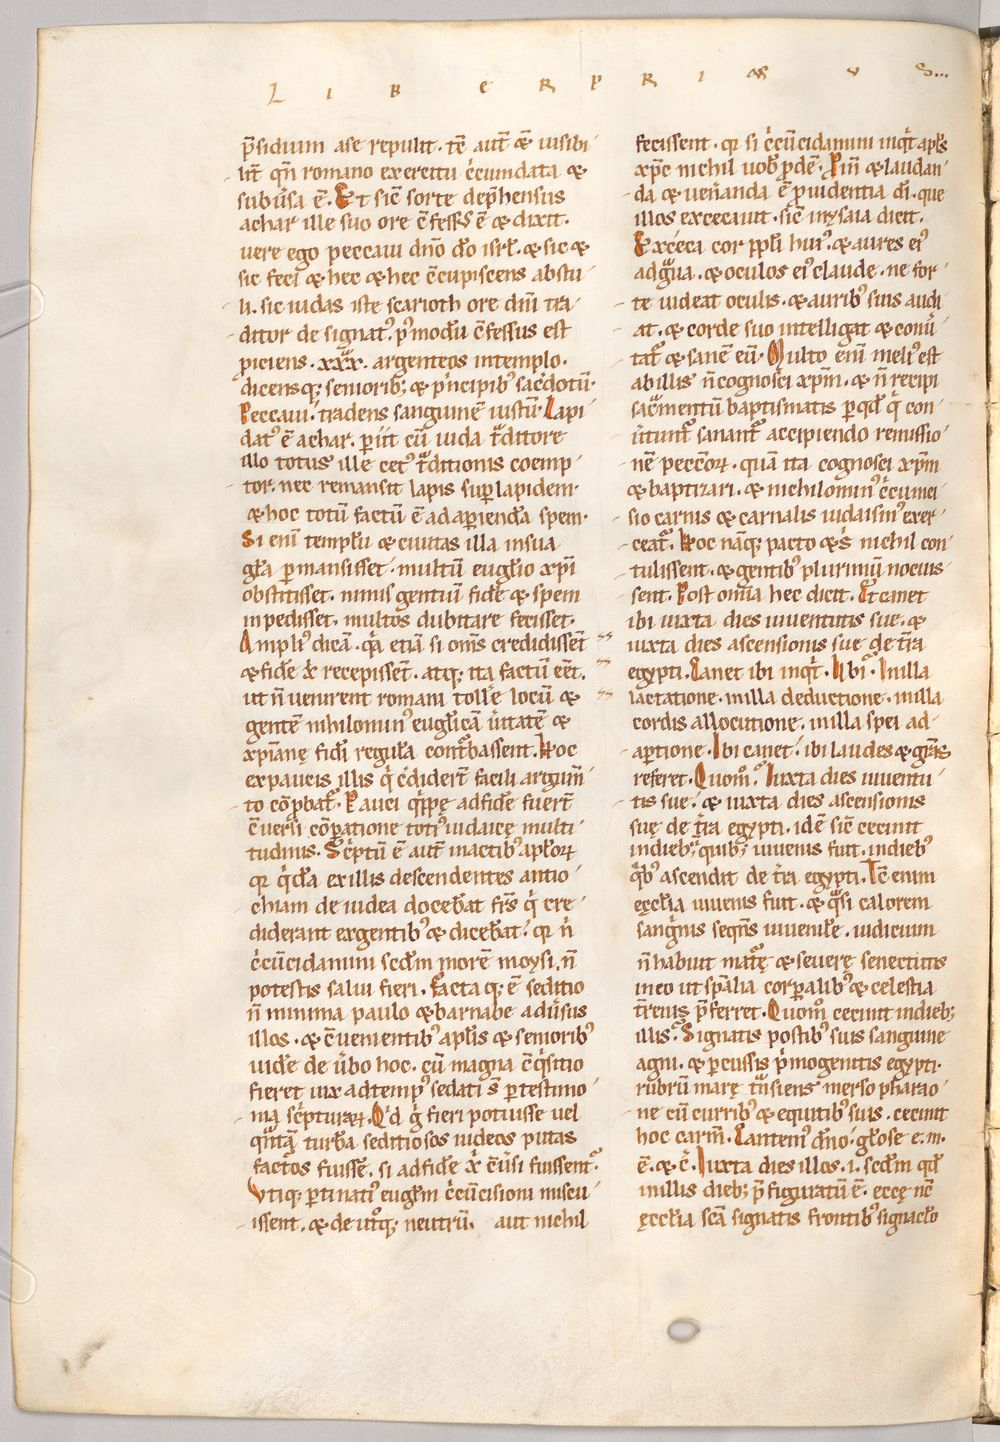 LIBER PRIMUS...
p̄sidium a se repulit. t̄c aut̄ & uisibi
lit̄ qn̄ romano exercitu c̓cumdata &
subu̓sa ē. Et sic̄ sorte dep̄hensus
achar ille suo ore c̄fessus ē & dixit.
uere ego peccaui dn̄o dō isrl̄. & sic &
sic feci & hec & hec c̄cupiscens abstu
li. sic iudas iste scarioth ore dn̄i tra
ditor designat᾽ p̓modū c̄fessus est
piciens .xxx. argenteos in templo.
dicens q; seniorib; & p̓ncipib᾽ sac̓dotū.
Peccaui. tradens sanguinē iustū. Lapi
dat᾽ ē achar. p̱iit cū iuda t̾ditore
illo totus ille cet᾽ t̾ditionis coemp
tor. nec remansit lapis sup̱ lapidem.
& hoc totū factū ē ad ap̱iendā spem.
Si enī templū & ciuitas illa in sua
gl̄a p̱mansisset. multū eugl̄io xp̄i
obstitisset. nimis gentiū fidē & spem
inpedisset. multos dubitare fecisset.
Ampli᾽ dicā. q̾a etiā si om̄s credidissēt
& fidē xp̄i recepissēt. atq; ita factū eēt.
ut n̄ uenirent romani tollē locū &
gentē nihilomin᾽ eugl̄icā u̓itatē &
xp̄ianę fidei regulā cont̾bassent. Hoc
ex paucis illis q̓ c̓didert̄ facili argum̄
to cōp̱bat᾽. Pauci q̓ppę ad fidē fuert̄
c̄uersi cōp̱atione toti᾽ iudaicę multi
tudinis. Sc̓ptū ē aut̄ in actib᾽ apl̄oꝝ
qꝛ q̓dā ex illis descendentes antio
chiam de iudea docebāt fr̄s q̓ cre
diderant ex gentib᾽ & dicebāt. qꝛ n̓
c̓cūcidamini scd̄m morē moysi. n̄
potestis salui fieri. Facta q; ē seditio
n̄ minima paulo & barnabe adu̓sus
illos. & c̄uenientib᾽ apl̄is & seniorib᾽
uidē de u̓bo hoc. cū magna c̄q̓sitio
fieret uix ad temp᾽ sedati s̄ p̱ testimo
nia sc̓pturaꝝ. Qd̓ g̓ fieri potuisse uel
q̾ntā turbā seditiosos iudeos putas
factos fuissē. si ad fidē xp̄i c̄u̓si fuissent.
Vtiq; p̱tinati᾽ eugl̄m c̓cūcisioni miscu
issent. & de ut̓oq; neutrū. aut nichil
fecissent. qꝛ si c̓cūcidamini inq̓t apl̄s
xp̄c nichil uob᾽ p̱dē. Proin̄ & laudan
da & uen̓anda ē prouidentia dī. que
illos excecauit. sic̄ in ysaia dicit.
Exceca cor ppl̄i hui᾽. & aures ei᾽
adg̾ua. & oculos ei᾽ claude. ne for
te uideat oculis. & aurib᾽ suis audi
at. & corde suo intelligat & conu̓
tat̾ & sanē eū. Multo enī meli᾽ est
ab illis n̄ cognosci xp̄m. & n̄ recipi
sac̾mentū baptismatis p̱ qd̄ q̓ con
u̓tunt̾ sanant̾ accipiendo remissio
nē pecc̄oꝝ. quā ita cognosci xp̄m
& baptizari. & nichilomin᾽ c̓cumci
sio carnis & carnalis iudaism᾽ exer
ceat̾. Hoc nāq; pacto & s̓ nichil con
tulissent. & gentib᾽ plurimū nocuis
sent. Post om̄ia hec dicit. Et canet
ibi iuxta dies iuuentutis sue. &
iuxta dies ascensionis sue de t̄ra
egypti. Canet ibi inq̓t. Vbi. In illa
lactatione. in illa deductione. in illa
cordis allocutione. in illa spei ad
ap̱tione. Ibi canet. ibi laudes & gr̄as
referet. Quom̊. Iuxta dies iuuentu
tis sue. & iuxta dies ascensionis
suę de t̄ra egypti. idē sic̄ cecinit
in dieb; quib; iuuenis fuit. in dieb᾽
q̓b᾽ ascendit de t̄ra egypti. Tc̄ enim
ęccl̄ia iuuenis fuit. & q̾si calorem
sang̓nis seqn̄s iuuenilē. iudicium
n̄ habuit mat̾ę & seuerę senectutis
in eo ut sp̄alia corp̱alib᾽ & celestia
t̄renis p̄ferret. Quom̊ cecinit in dieb;
illis. Signatis postib᾽ suis sanguine
agni. & percussis p̓mogenitis egypti.
rubrū marę t̾nsiens merso pharao
ne cū currib᾽ & equitib᾽ suis. cecinit
hoc carm̄. Cantem᾽ dn̄o. gl̄ose e. m.
ē. & c̓. Iuxta dies illos .i. scd̄m qd̄
in illis dieb; p̄figuratū ē. eccę nc̄
ęccl̄ia sc̄a signatis frontib᾽ signacl̄o